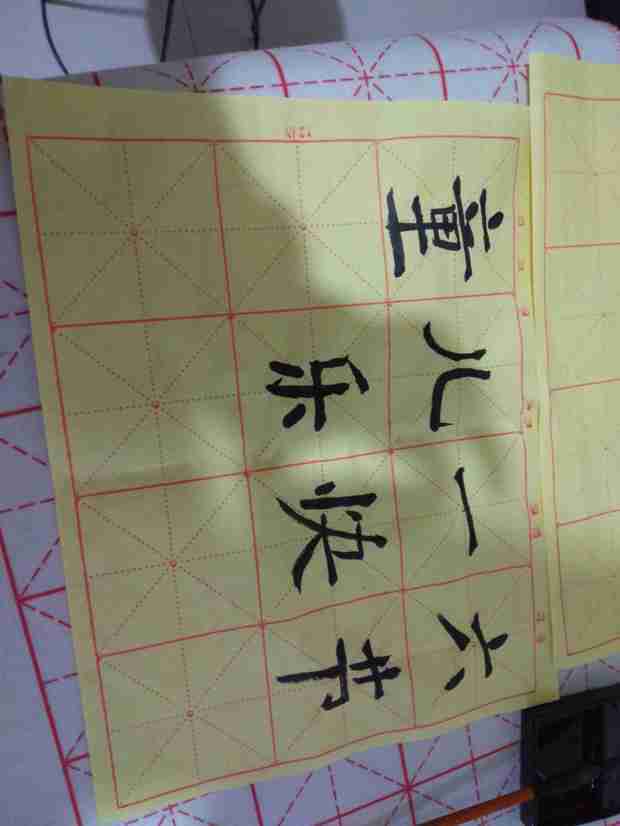 六一儿童
节快乐